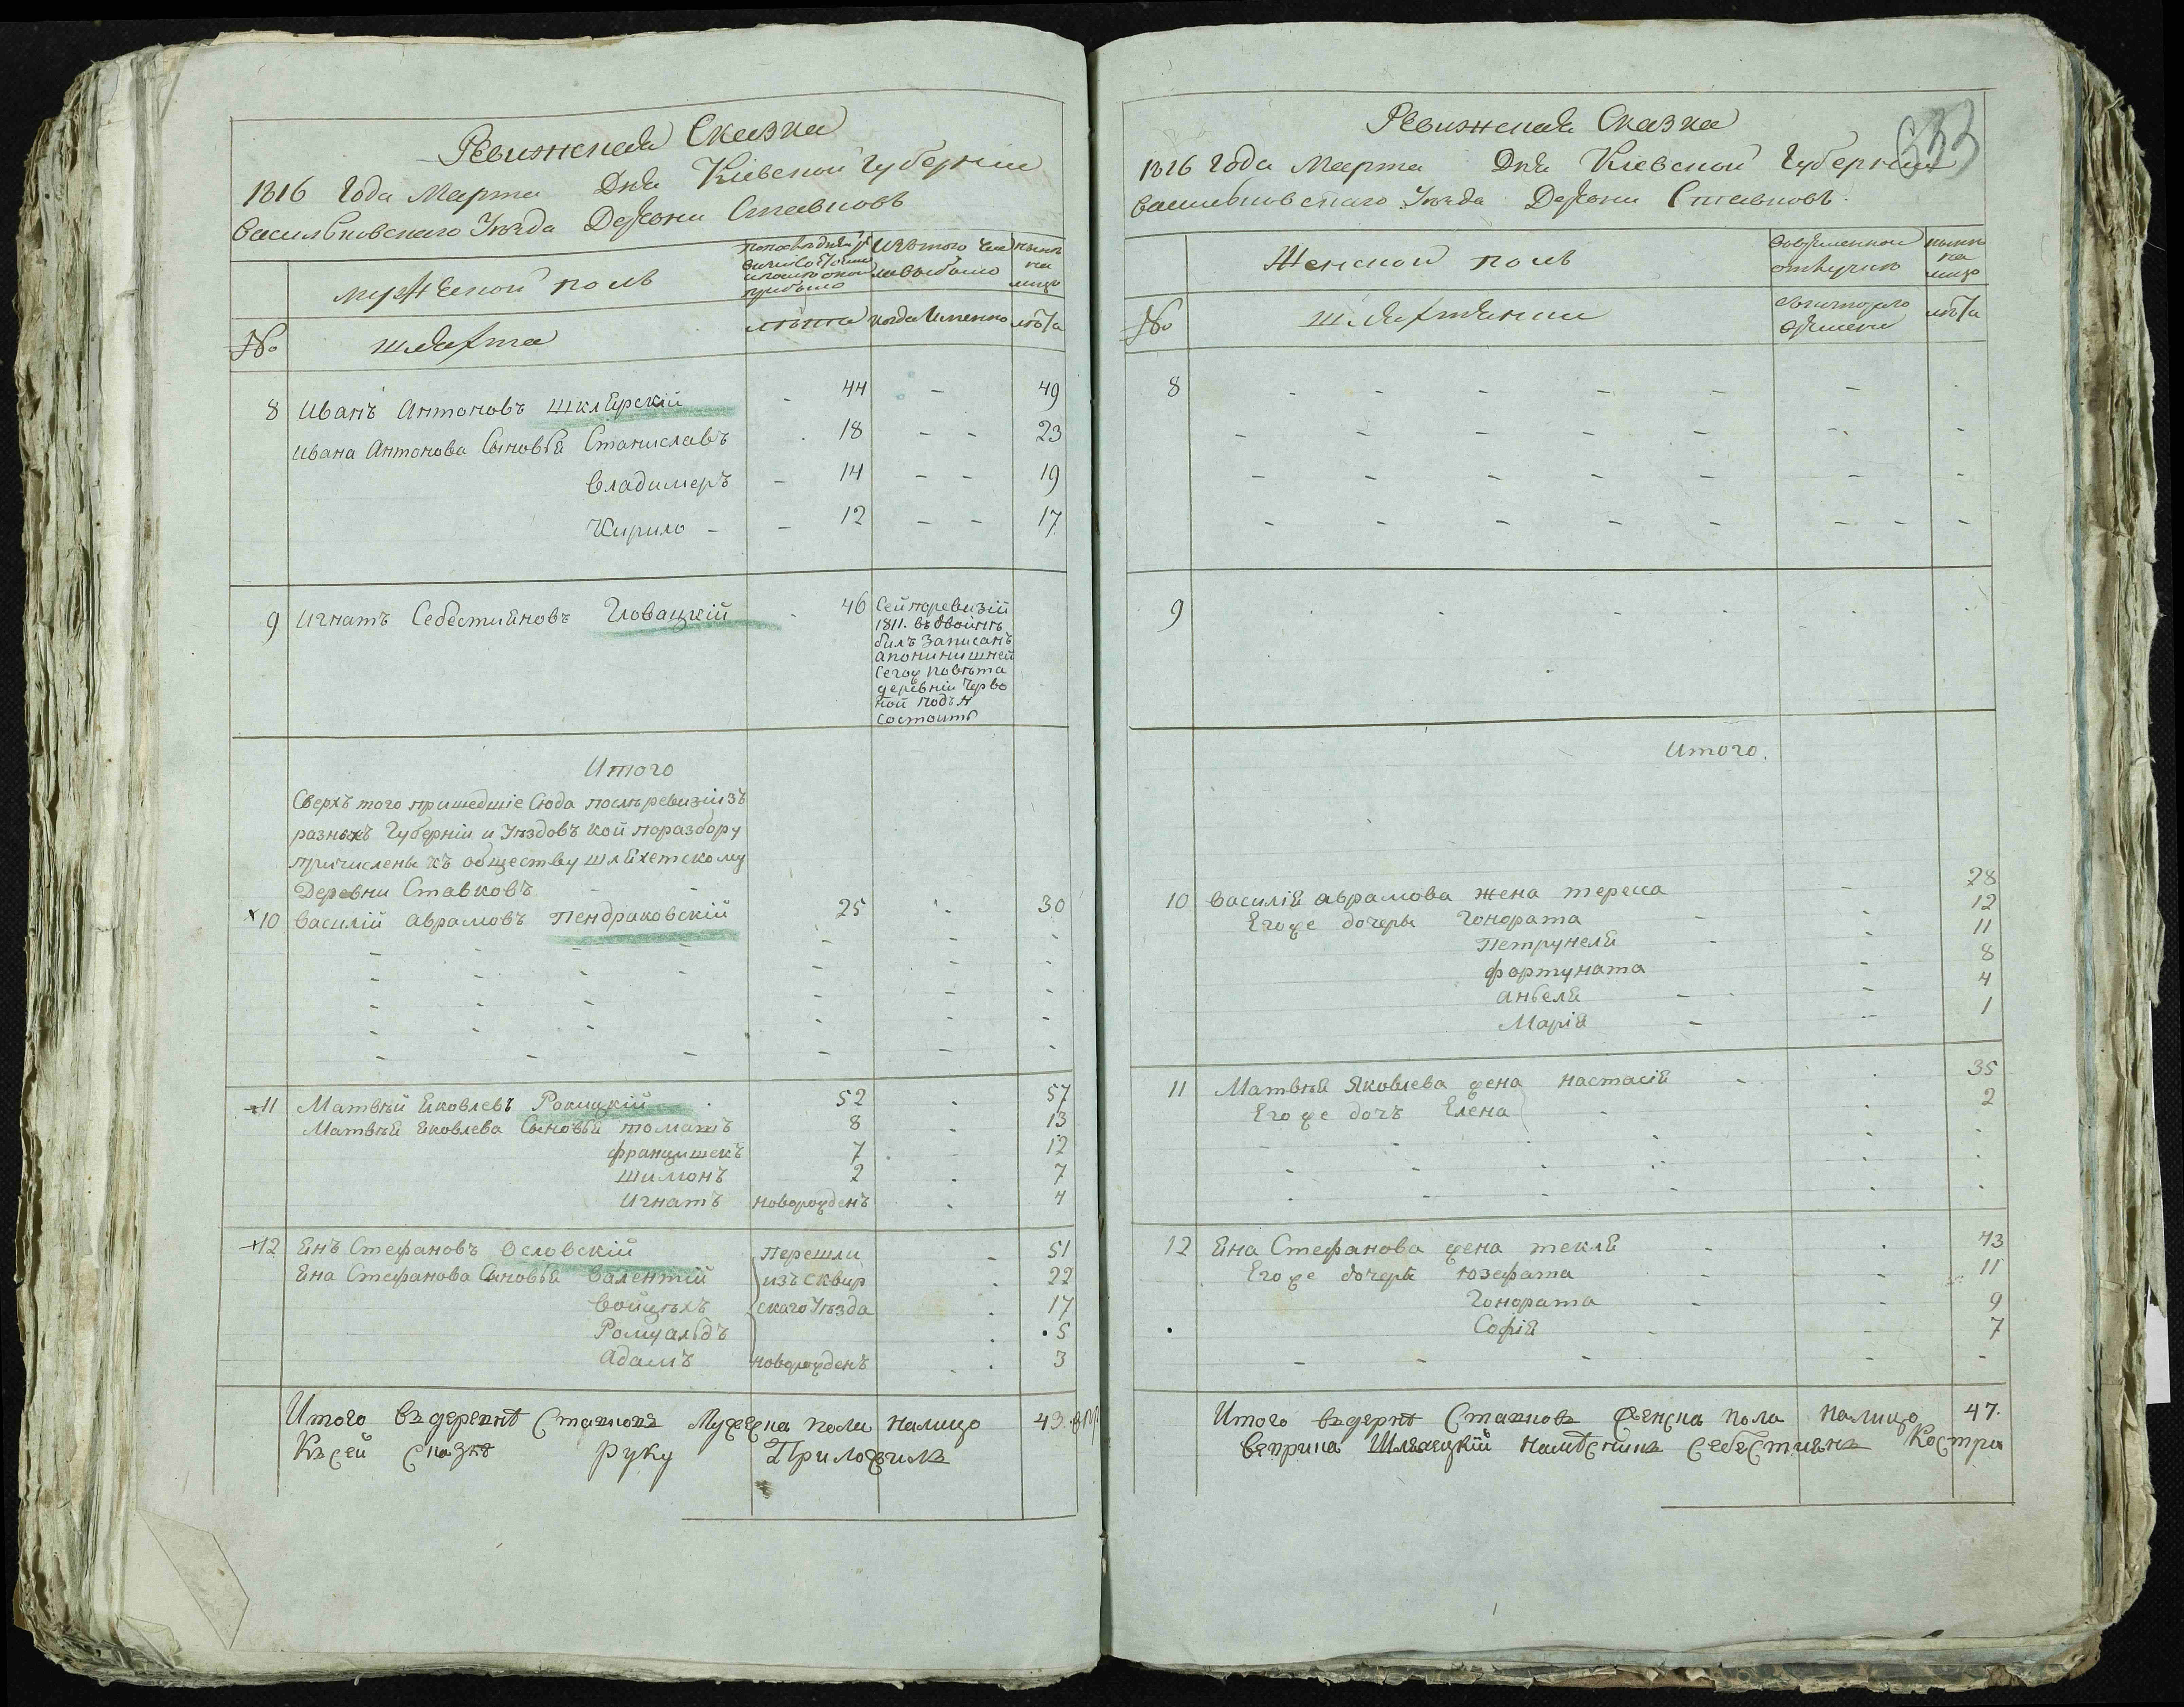 Ревижская Сказка
1816 Года Марта Дня Кіевской Губерніи
Васильковскаго Уѣзда Дерѣвни Ставковъ
мужеской полъ
Изътого числа выбыло
нынѣ на лицо
№
шляхта
лѣта
когда Именно
лѣта
8 Иванъ Антоновъ Шклярскій - 44 - 49
Ивана Антонова Сыновья Станиславъ . 18 - - 23
Владимеръ - 14 - - 19
Кирило - - 12 - - 17
9 Игнатъ Себестияновъ Гловацкій - 46
Сей поревизіи
1811. въ Двойнѣ
билъ Записанъ
апонинишней
Сегоже повѣта
деревніи Черво
ной подъ №
Состоитъ
Итого
Сверхъ того пришедшіе Сюда послѣ ревизіи зъ
разныхъ Губерніи и Уѣздовъ кой поразбору
причислены къ обществу шляхетскому
Деревни Ставковъ - -
х10 Василій Аврамовъ Пендраковскій 25 . 30
х11 Матвѣй Яковлевъ Рокицкій . 52 . 57
Матвѣя Яковлева Сыновья томашъ 8 . 13
францишекъ 7 . 12
шимонъ 2 . 7
Игнатъ новорожденъ . 4
х12 Янъ Стефановъ Ословскій Перешли - 51
Яна Стефанова Сыновья Валентій изъ Сквир . 22
Войцѣхъ скаго Уѣзда . 17
Ромуальдъ . 5
Адамъ новорожденъ . 3
Итого въ деревнѣ Ставковъ Мужеска пола налицо 43.
Къ сей сказкѣ руку Приложилъ
Ревижская Сказка
1816 Года Марта Дня Кіевской Губерніи
Васильковскаго Уѣзда Дерѣвни Ставковъ.
Женской полъ
вовременной отлучкѣ
нынѣ на лицо
№
шляхтянки
лѣта
8 - - - - - -
9
Итого.
10 Василія Аврамова жена тереса - 28
Егоже дочеры Гонората - - 12
Петрунеля - - 11
фортуната - 8
анѣеля - - 4
Марія - - 1
11 Матвѣя Яковлева жена Настасія - . 35
Егоже дочъ Елена - . 2
12 Яна Стефанова жена текля - . 43
Егоже дочеря Юзефата - - 11
Гонората - - 9
Софія - - 7
Итого въ дернѣ Ставковъ женска пола налицо 47.
Шляхецкій намѣсникъ себестиянъ Костри